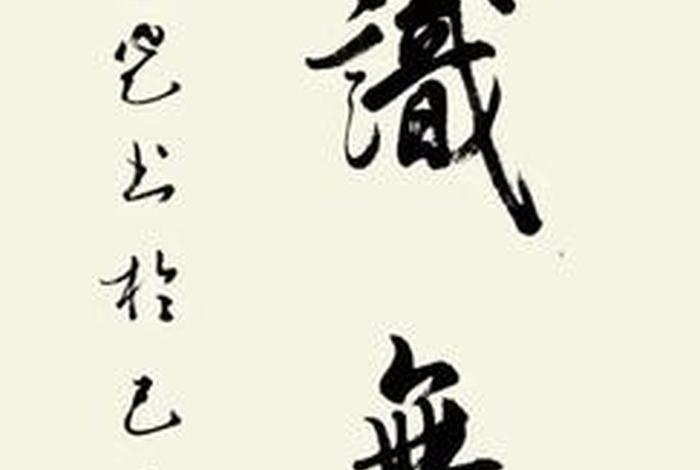 識無
书於己